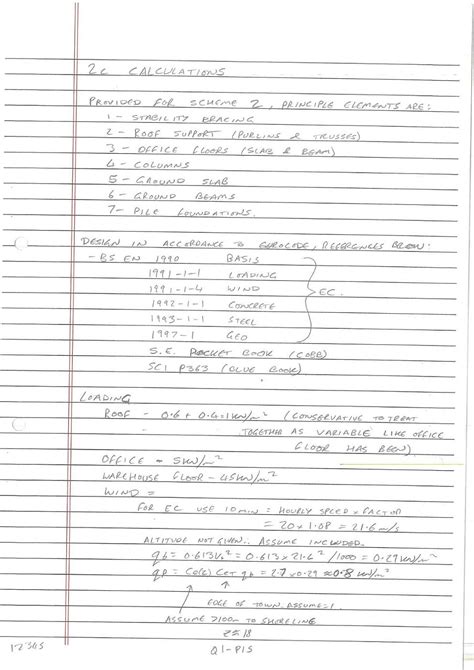 2c CALCULATIONS
PROVIDED FOR SCHEME 2, PRINCIPLE ELEMENTS ARE:
1 - STABILITY BRACING
2 - ROOF SUPPORT (PURLINS & TRUSSES)
3 - OFFICE FLOORS (SLAB & BEAM)
4 - COLUMNS
5 - GROUND SLAB
6 - GROUND BEAMS
7 - PILE FOUNDATIONS.
DESIGN IN ACCORDANCE TO EUROCODE, REFERENCES BELOW:
- BS EN 1990 BASIS
1991-1-1 LOADING
1991-1-4 WIND
1992-1-1 CONCRETE
1993-1-1 STEEL
1997-1 GEO
EC.
S.E. POCKET BOOK (COBB)
SCI P363 (BLUE BOOK)
LOADING
ROOF - 0.6 + 0.4 = 1kN/m² (CONSERVATIVE TO TREAT
TOGETHER AS VARIABLE LIKE OFFICE
FLOOR HAS BEEN)
OFFICE - 5kN/m²
WAREHOUSE FLOOR - 45kN/m²
WIND =
FOR EC USE 10min = HOURLY SPEED x FACTOR
= 20 x 1.08 = 21.6 m/s
ALTITUDE NOT GIVEN.. ASSUME INCLUDED.
qb = 0.613Vb² = 0.613 x 21.6² /1000 = 0.29kN/m²
qp = Ce(z) CeT qb = 2.7 x 0.29 ≈ 0.8 kN/m²
EDGE OF TOWN, ASSUME = 1.
ASSUME >100m TO SHORELINE
Z ≤ 18
12345
Q1-P15